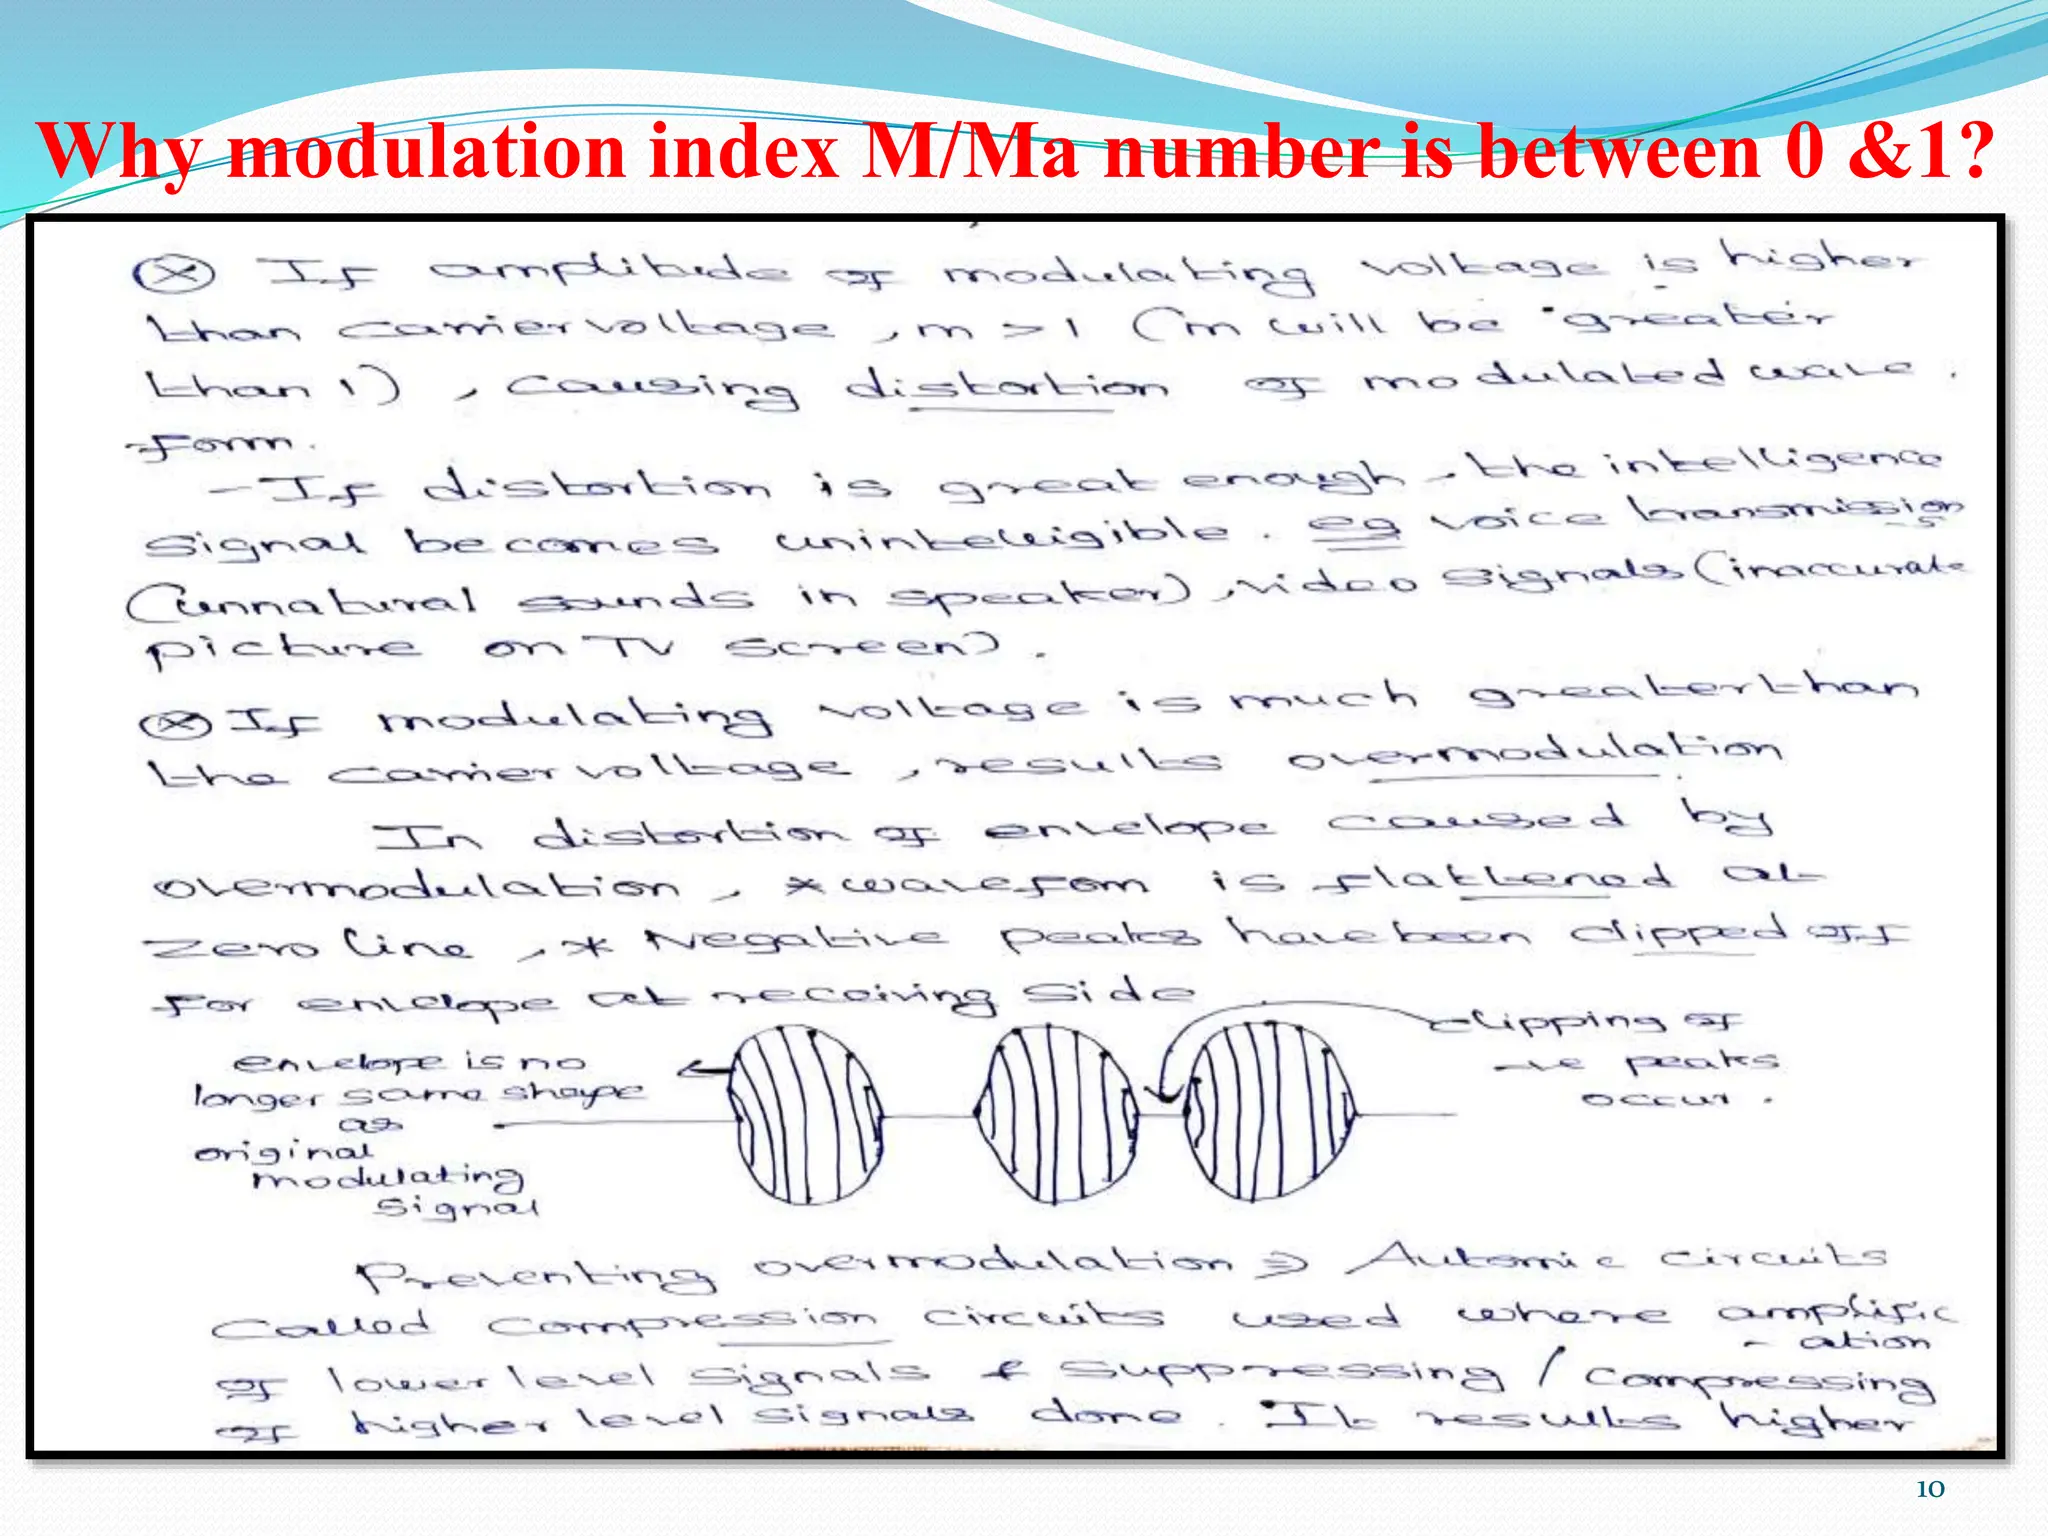 Why modulation index M/Ma number is between 0 &1?
If amplitude of modulating voltage is higher
than carrier voltage, m > 1 (m will be greater
than 1), causing distortion of modulated wave.
-form.
- If distortion is great enough, the intelligence
signal becomes unintelligible. eg voice transmission
(unnatural sounds in speaker), video signals (inaccurate
picture on TV screen).
If modulating voltage is much greater than
the carrier voltage, results overmodulation
In distortion of envelope caused by
overmodulation, * waveform is flattened at
zero line, * Negative peaks have been clipped off
for envelope at receiving side
clipping of
-ve peaks
occur.
envelope is no
longer same shape
as
original
modulating
signal
Preventing overmodulation ⇒ Automic circuits
called compression circuits used where amplific
- ation
of lower level signals & suppressing / compressing
of higher level signals done. It results higher
10